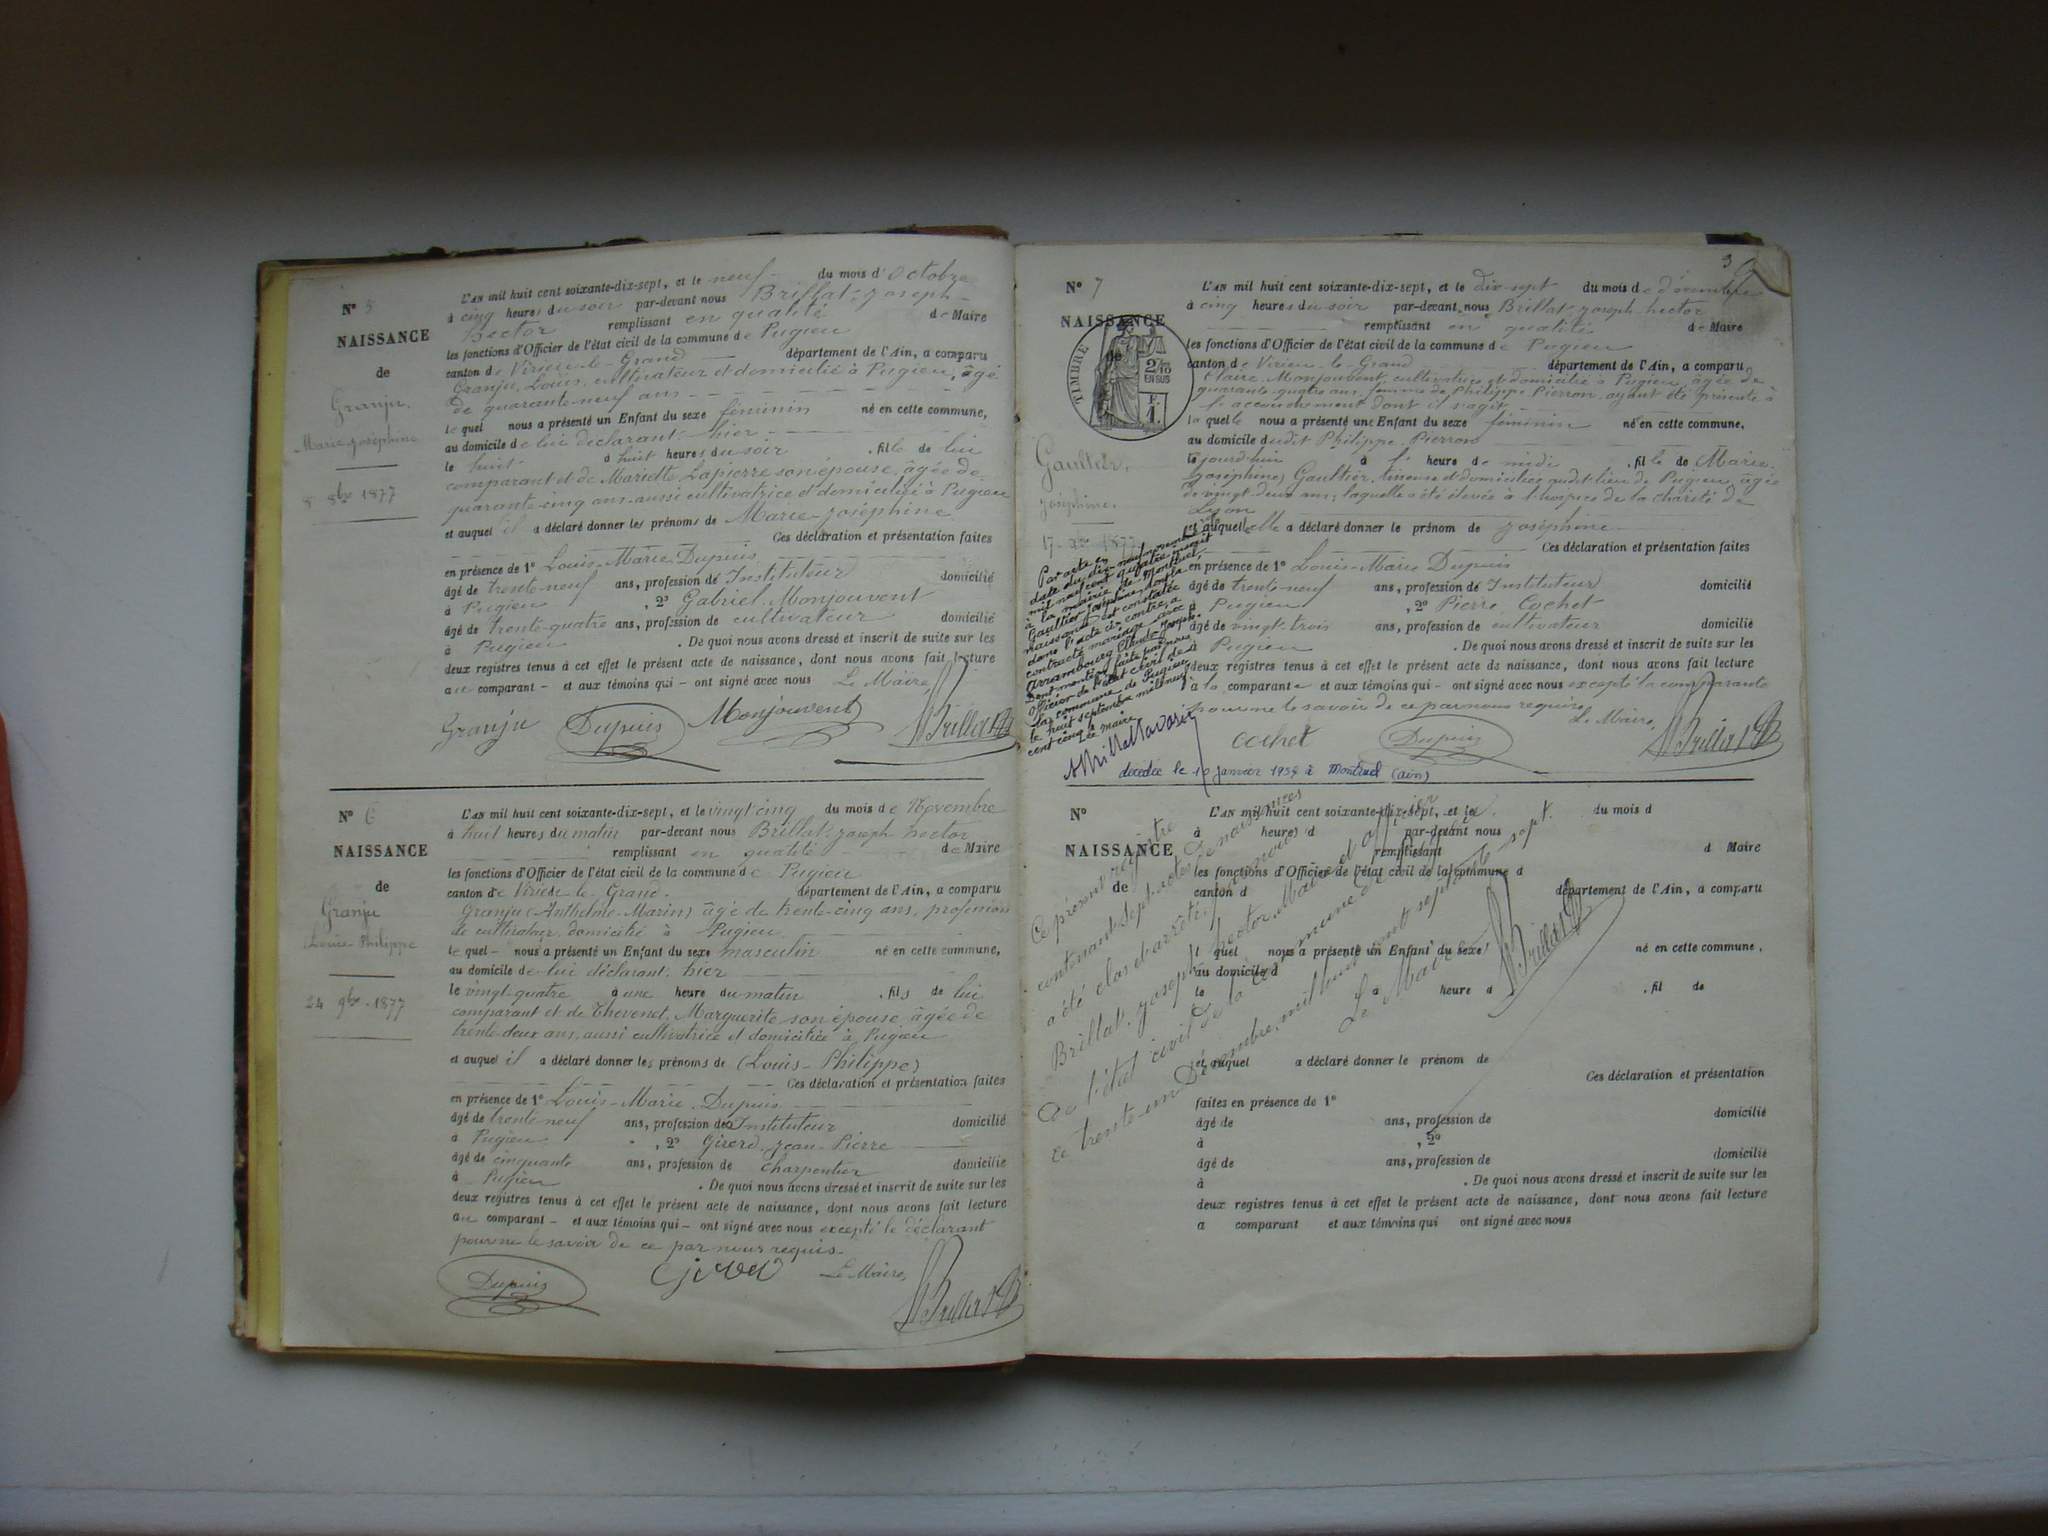 N° 5
NAISSANCE
de
Granju.
Marie-Joséphine
8 8bre 1877
L'AN mil huit cent soixante-dix-sept, et le neuf du mois d'Octobre
à cinq heures du soir par-devant nous Brillat-Joseph-
hector remplissant en qualité de Maire
les fonctions d'Officier de l'état civil de la commune de Pugieu
canton de Virieu-le-Grand département de l'Ain, a comparu
Granju, Louis, cultivateur et domicilié à Pugieu, âgé
de quarante-neuf ans
lequel nous a présenté un Enfant du sexe féminin né en cette commune,
au domicile de lui déclarant hier
le huit à huit heures du soir, fille de lui
comparant et de Mariette Lapierre son épouse, âgée de
quarante-cinq ans aussi cultivatrice et domiciliée à Pugieu
et auquel il a déclaré donner les prénoms de Marie-Joséphine
Ces déclaration et présentation faites
en présence de 1° Louis-Marie Dupuis
âgé de trente-neuf ans, profession de Instituteur domicilié
à Pugieu, 2° Gabriel Monjouvent
âgé de trente-quatre ans, profession de cultivateur domicilié
à Pugieu. De quoi nous avons dressé et inscrit de suite sur les
deux registres tenus à cet effet le présent acte de naissance, dont nous avons fait lecture
au comparant - et aux témoins qui - ont signé avec nous Le Maire,
Granju Dupuis Monjouvent Brillat
N° 6
NAISSANCE
de
Granju
Louis-Philippe
24 9bre 1877
L'AN mil huit cent soixante-dix-sept, et le vingt-cinq du mois de Novembre
à huit heures du matin par-devant nous Brillat-Joseph hector
remplissant en qualité de Maire
les fonctions d'Officier de l'état civil de la commune de Pugieu
canton de Virieu-le-Grand. département de l'Ain, a comparu
Granju (Anthelme-Marin) âgé de trente-cinq ans, profession
de cultivateur domicilié à Pugieu
lequel - nous a présenté un Enfant du sexe masculin né en cette commune,
au domicile de lui déclarant, hier
le vingt-quatre à une heure du matin, fils de lui
comparant et de Thevenet, Marguerite son épouse âgée de
trente-deux ans, aussi cultivatrice et domiciliée à Pugieu
et auquel il a déclaré donner les prénoms de (Louis-Philippe)
Ces déclaration et présentation faites
en présence de 1° Louis-Marie Dupuis
âgé de trente-neuf ans, profession de Instituteur domicilié
à Pugieu, 2° Girerd, Jean-Pierre
âgé de cinquante ans, profession de charpentier domicilié
à Pugieu. De quoi nous avons dressé et inscrit de suite sur les
deux registres tenus à cet effet le présent acte de naissance, dont nous avons fait lecture
au comparant - et aux témoins qui - ont signé avec nous excepté le déclarant
pour ne le savoir de ce par nous requis.
Dupuis Girerd Le Maire, Brillat
3
N° 7
NAISSANCE
de
TIMBRE
2/10
EN SUS
F.
1.
Gaultier,
Joséphine.
17 Xbre 1877
L'AN mil huit cent soixante-dix-sept, et le dix-sept du mois de décembre
à cinq heures du soir par-devant nous Brillat-Joseph-hector
remplissant en qualité de Maire
les fonctions d'Officier de l'état civil de la commune de Pugieu
canton de Virieu-le-Grand département de l'Ain, a comparu
Claire Monjouvent, cultivatrice et domiciliée à Pugieu, âgée de
quarante-quatre ans, femme de Philippe Pierron, ayant été présente à
l'accouchement dont il s'agit
laquelle nous a présenté un Enfant du sexe féminin né en cette commune,
au domicile dudit Philippe Pierron
le jourd'hui à heure de midi, fille de Marie
(Joséphine) Gaultier, tisseuse et domiciliée audit lieu de Pugieu, âgée
de vingt-deux ans, laquelle a été élevée à l'hospice de la charité de
Lyon
et auquel elle a déclaré donner le prénom de Joséphine
Ces déclaration et présentation faites
en présence de 1° Louis-Marie Dupuis
âgé de trente-neuf ans, profession de Instituteur domicilié
à Pugieu, 2° Pierre Cochet
âgé de vingt-trois ans, profession de cultivateur domicilié
à Pugieu. De quoi nous avons dressé et inscrit de suite sur les
deux registres tenus à cet effet le présent acte de naissance, dont nous avons fait lecture
à la comparante et aux témoins qui - ont signé avec nous excepté la comparante
pour ne le savoir de ce par nous requise
Le Maire,
Cochet Dupuis Brillat
Par acte en
date du dix-neuf novembre
mil neuf cent quatre inscrit
à la mairie de Montluel,
Gaultier Joséphine, dont la
naissance est constatée
dans l'acte ci-contre, a
contracté mariage avec
Arrambourg Claude-Joseph.
Dont mention faite par nous
officier de l'état civil de
la commune de Pugieu
le huit septembre mil neuf
cent cinq
Le maire
décédée le 10 janvier 1959 à Montluel (ain)
N°
NAISSANCE
de
L'AN mil huit cent soixante-dix-sept, et le du mois d
à heures d par-devant nous
remplissant d Maire
les fonctions d'Officier de l'état civil de la commune d
canton d département de l'Ain, a comparu
l quel nous a présenté un Enfant du sexe né en cette commune,
au domicile d
le à heure d, fil de
et auquel a déclaré donner le prénom de
Ces déclaration et présentation
faites en présence de 1°
âgé de ans, profession de domicilié
à, 2°
âgé de ans, profession de domicilié
à. De quoi nous avons dressé et inscrit de suite sur les
deux registres tenus à cet effet le présent acte de naissance, dont nous avons fait lecture
a comparant et aux témoins qui ont signé avec nous
Ce présent registre
contenant sept actes de naissances
a été clos et arrêté, par nous
Brillat-Joseph hector, Maire et officier
de l'état civil de la commune de Pugieu.
ce trente-un Décembre, mil huit cent soixante-dix-sept.
Le Maire Brillat